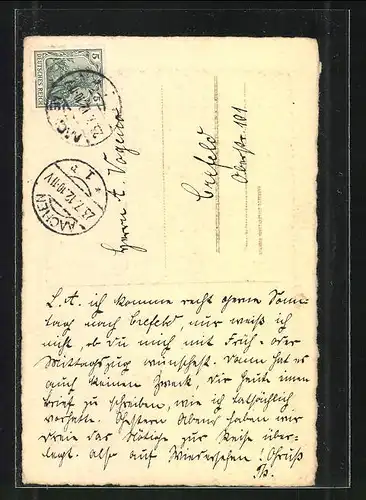 5
DEUTSCHES REICH
AACHEN
1
Herrn A. Vogen
Crefeld
Oberstr. 101
L. A. ich komme recht gerne Sonn-
tag nach Crefeld, nur weiß ich
nicht, ob Du mich mit Früh- oder
Mittagszug wünschest. Dann hat es
auch keinen Zweck, Dir heute einen
Brief zu schreiben, wie ich tatsächlich
vorhatte. Gestern Abend haben wir
Dreie das Nötige zur Reise über-
legt. Also auf Wiedersehen! Gruß